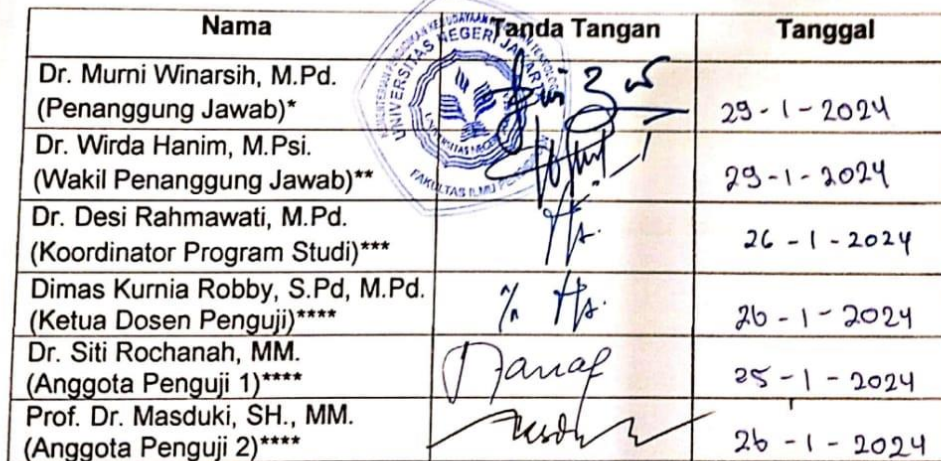 Nama Tanda Tangan Tanggal
Dr. Murni Winarsih, M.Pd.
(Penanggung Jawab)* 29-1-2024
Dr. Wirda Hanim, M.Psi.
(Wakil Penanggung Jawab)** 29-1-2024
Dr. Desi Rahmawati, M.Pd.
(Koordinator Program Studi)*** 26-1-2024
Dimas Kurnia Robby, S.Pd, M.Pd.
(Ketua Dosen Penguji)**** 26-1-2024
Dr. Siti Rochanah, MM.
(Anggota Penguji 1)**** 25-1-2024
Prof. Dr. Masduki, SH., MM.
(Anggota Penguji 2)**** 26-1-2024
UNIVERSITAS NEGERI JAKARTA